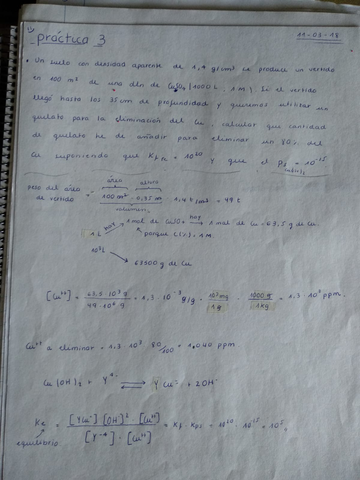 práctica 3
11-01-18
• Un suelo con densidad aparente de 1,4 g/cm³ se produce un vertido
en 100 m² de una dln de CuSO4 (1000 L, 1M). Si el vertido
llegó hasta los 35cm de profundidad y queremos utilizar un
quelato para la eliminación del Cu, calcular que cantidad
de quelato he de añadir para eliminar un 80% del
Cu suponiendo que Kf = 10²⁰ y que el ps = 10⁻¹⁵
peso del área de vertido = 100 m² · 0,35 m · 1,4 t/m³ = 49 t
área
volumen
1L hay 1 mol de CuSO4 hay 1 mol de Cu = 63,5 g de Cu
porque 1M
10³L
63500 g de Cu
[Cu²⁺] = 63,5·10³ g / 49·10⁶ g = 1,3·10⁻³ g/g · 10³ mg / 1 g · 1000 g / 1 kg = 1,3·10³ ppm
Cu²⁺ a eliminar = 1,3·10³ · 80/100 = 1.040 ppm
Cu(OH)2 + Y⁴⁻ ⇌ YCu²⁻ + 2OH⁻
= [YCu²⁻][OH]²·[Cu²⁺] / [Y⁻⁴]·[Cu²⁺] = Kf · Kps = 10²⁰ · 10⁻¹⁵ = 10⁵
equilibrio